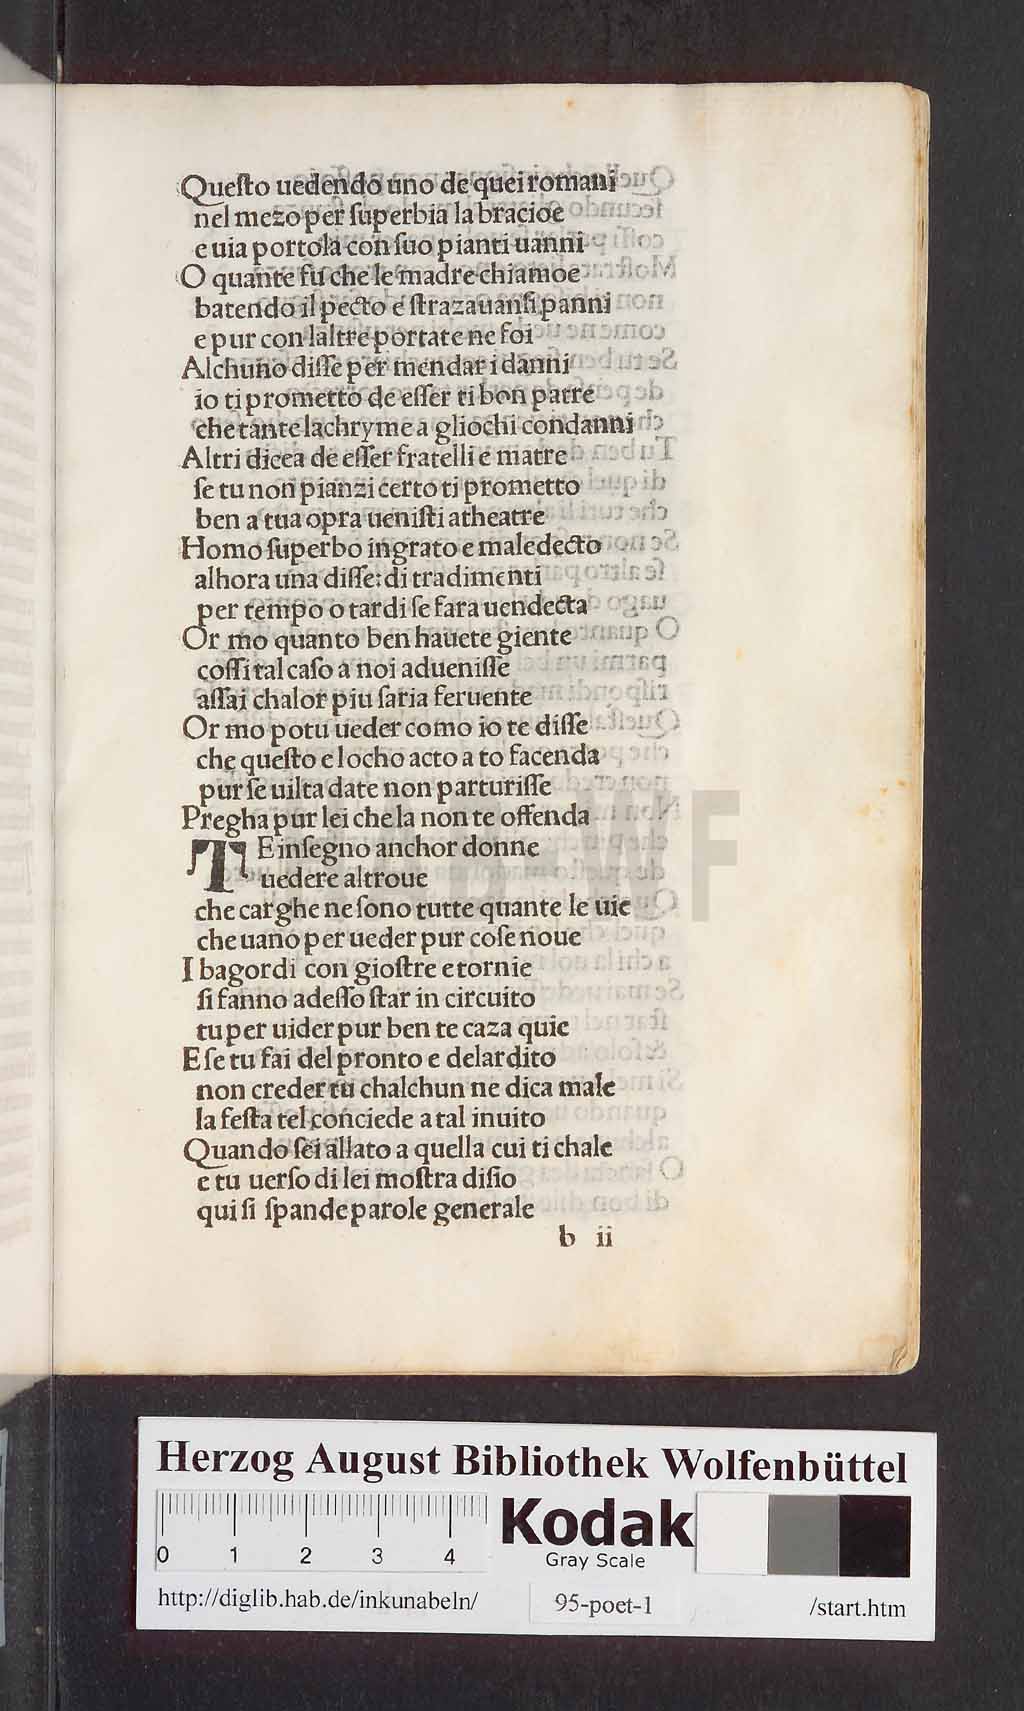 Queſto uedendo uno de quei romani
nel mezo per ſuperbia la bracioe
e uia portola con ſuo pianti uanni
O quante fu che le madre chiamoe
batendo il pecto e ſtrazauanſi panni
e pur con laltre portate ne foi
Alchuno diſſe per mendar i danni
io ti prometto de eſſer ti bon patre
che tante lachryme a gliochi condanni
Altri dicea de eſſer fratelli e matre
ſe tu non pianzi certo ti prometto
ben a tua opra ueniſti atheatre
Homo ſuperbo ingrato e maledecto
alhora una diſſe: di tradimenti
per tempo o tardi ſe fara uendecta
Or mo quanto ben hauete giente
coſſi tal caſo a noi adueniſſe
aſſai chalor piu ſaria feruente
Or mo potu ueder como io te diſſe
che queſto e locho acto a to facenda
pur ſe uilta date non parturiſſe
Pregha pur lei che la non te offenda
TE inſegno anchor donne
uedere altroue
che carghe ne ſono tutte quante le uie
che uano per ueder pur coſe noue
I bagordi con gioſtre e tornie
ſi fanno adeſſo ſtar in circuito
tu per uider pur ben te caza quie
E ſe tu fai del pronto e delardito
non creder tu chalchun ne dica male
la feſta tel conciede a tal inuito
Quando ſei allato a quella cui ti chale
e tu uerſo di lei moſtra diſio
qui ſi ſpande parole generale
b ii
HAB-WF
Herzog August Bibliothek Wolfenbüttel
0 1 2 3 4
Kodak
Gray Scale
http://diglib.hab.de/inkunabeln/ 95-poet-1 /start.htm